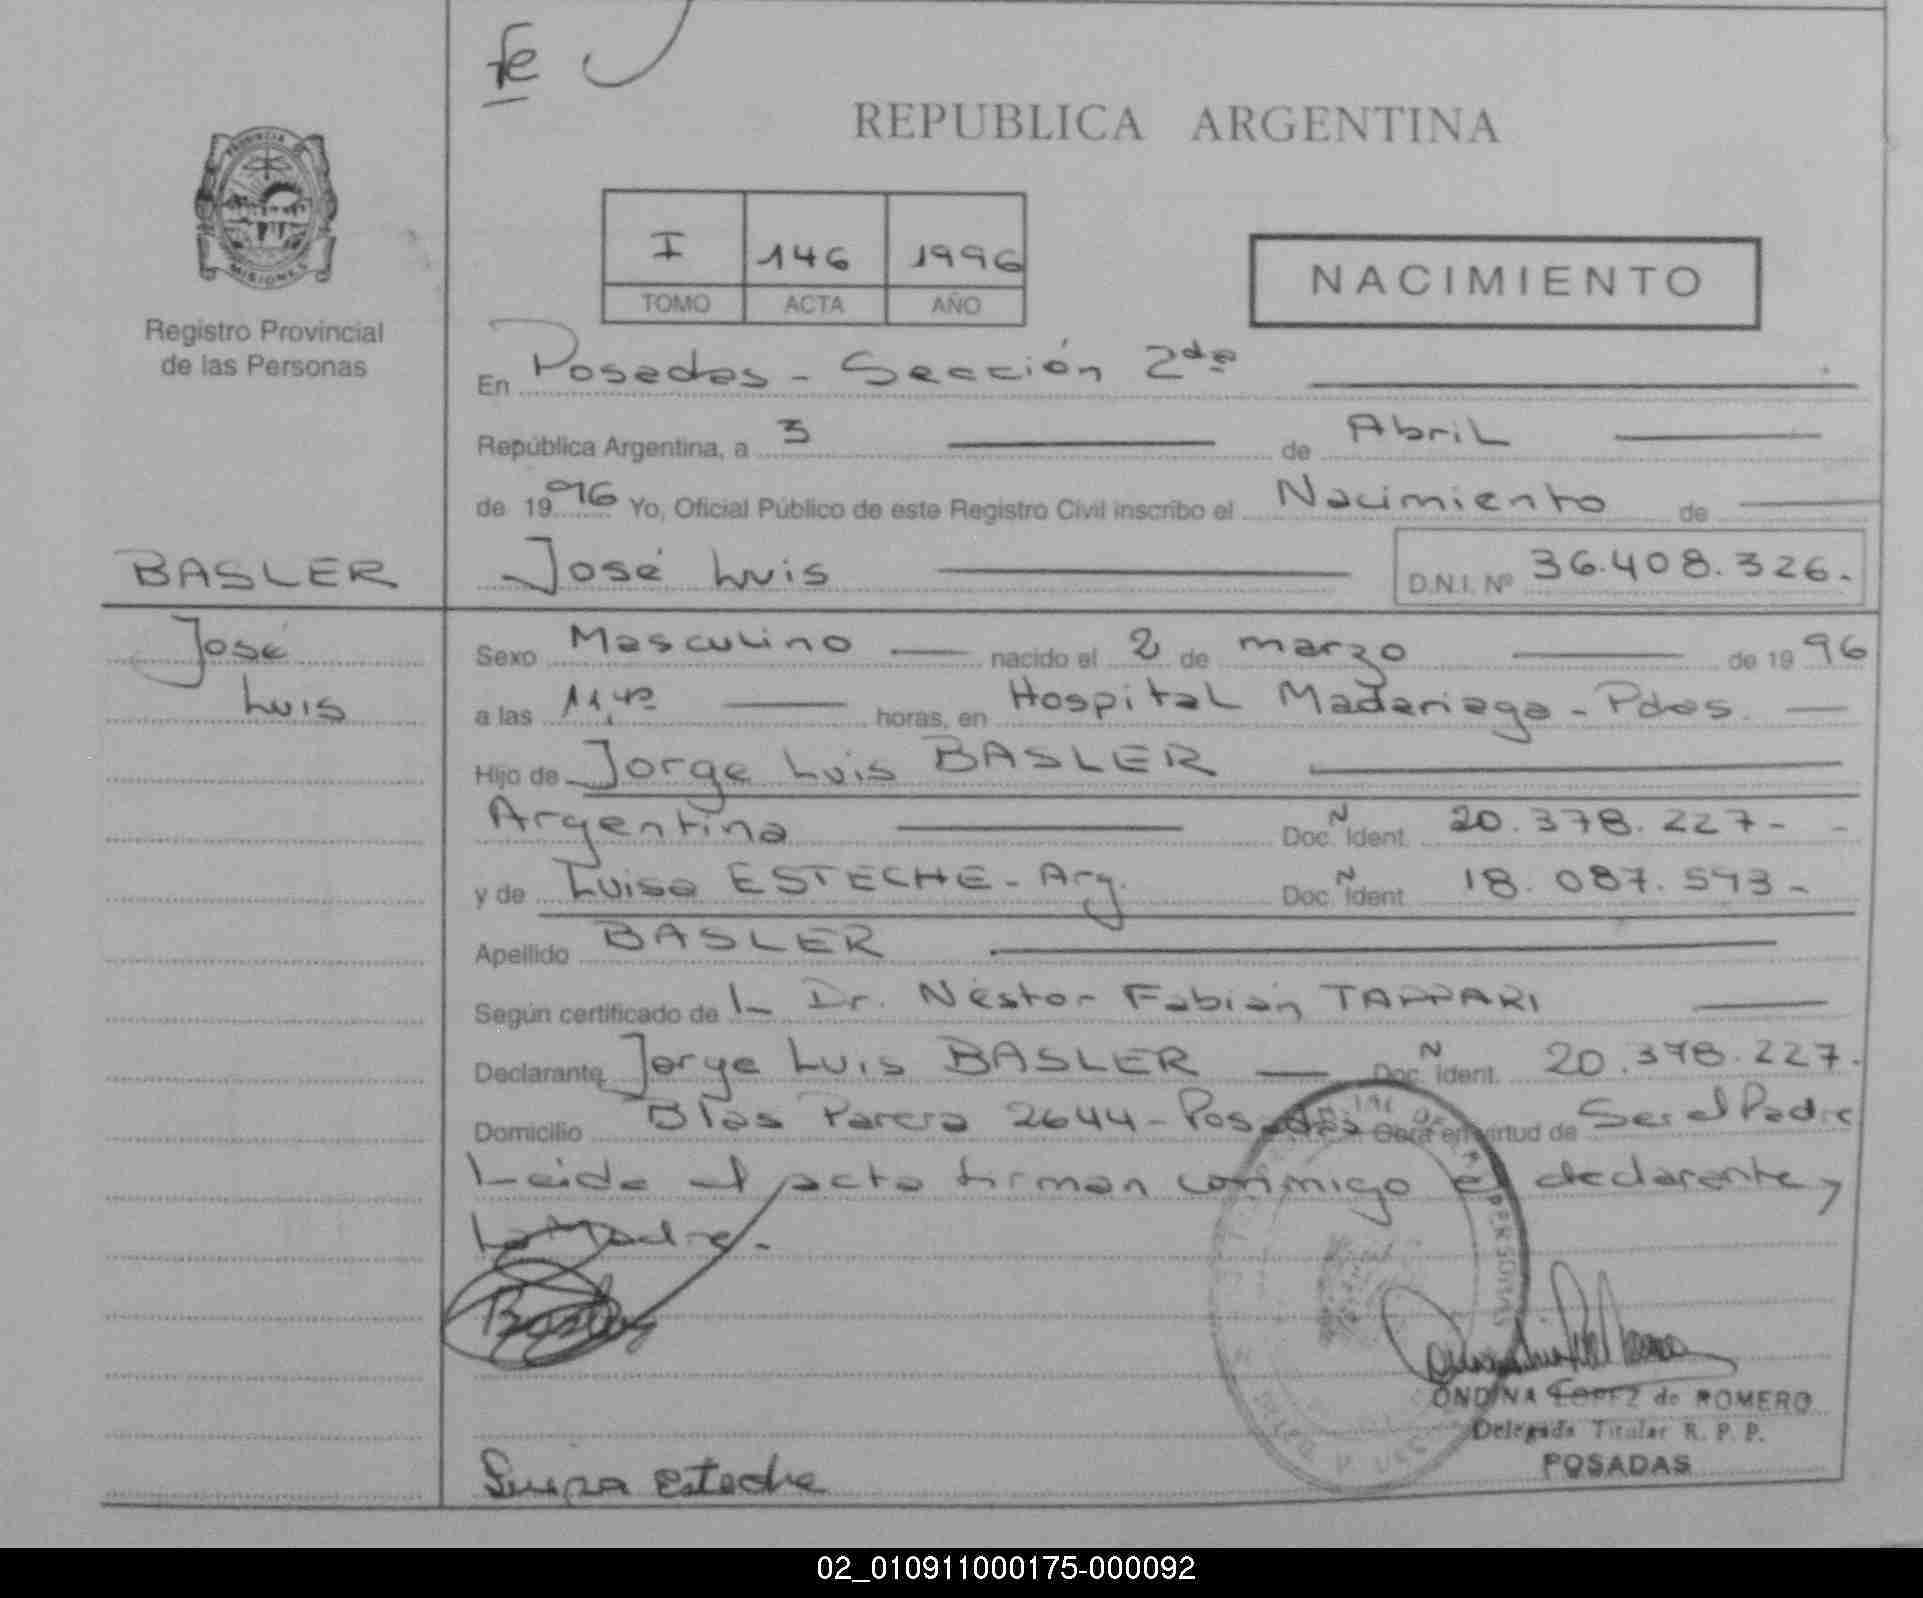 fe
REPUBLICA ARGENTINA
PROVINCIA DE
MISIONES
Registro Provincial
de las Personas
I 146 1996
TOMO ACTA AÑO
NACIMIENTO
En Posadas - Sección 2da
República Argentina, a 3 de Abril
de 1996 Yo, Oficial Público de este Registro Civil inscribo el Nacimiento de
BASLER
José Luis D.N.I. Nº 36.408.326.-
José
Luis
Sexo Masculino nacido el 2 de marzo de 1996
a las 11,40 horas, en Hospital Madariaga - Pdas.
Hijo de Jorge Luis BASLER
Argentina Doc. N Ident. 20.378.227-
y de Luisa ESTECHE - Arg. Doc. N Ident. 18.087.593-
Apellido BASLER
Según certificado de L Dr. Néstor Fabián TAPPARI
Declarante Jorge Luis BASLER Doc. N Ident. 20.378.227.
Domicilio Blas Parera 2644 - Posadas Obra en virtud de Ser el Padre
Leida el acta firman conmigo el declarante y
La Madre.-
Basler
ONDINA LOPEZ de ROMERO
Delegada Titular R. P. P.
POSADAS
Luisa Esteche
02_010911000175-000092